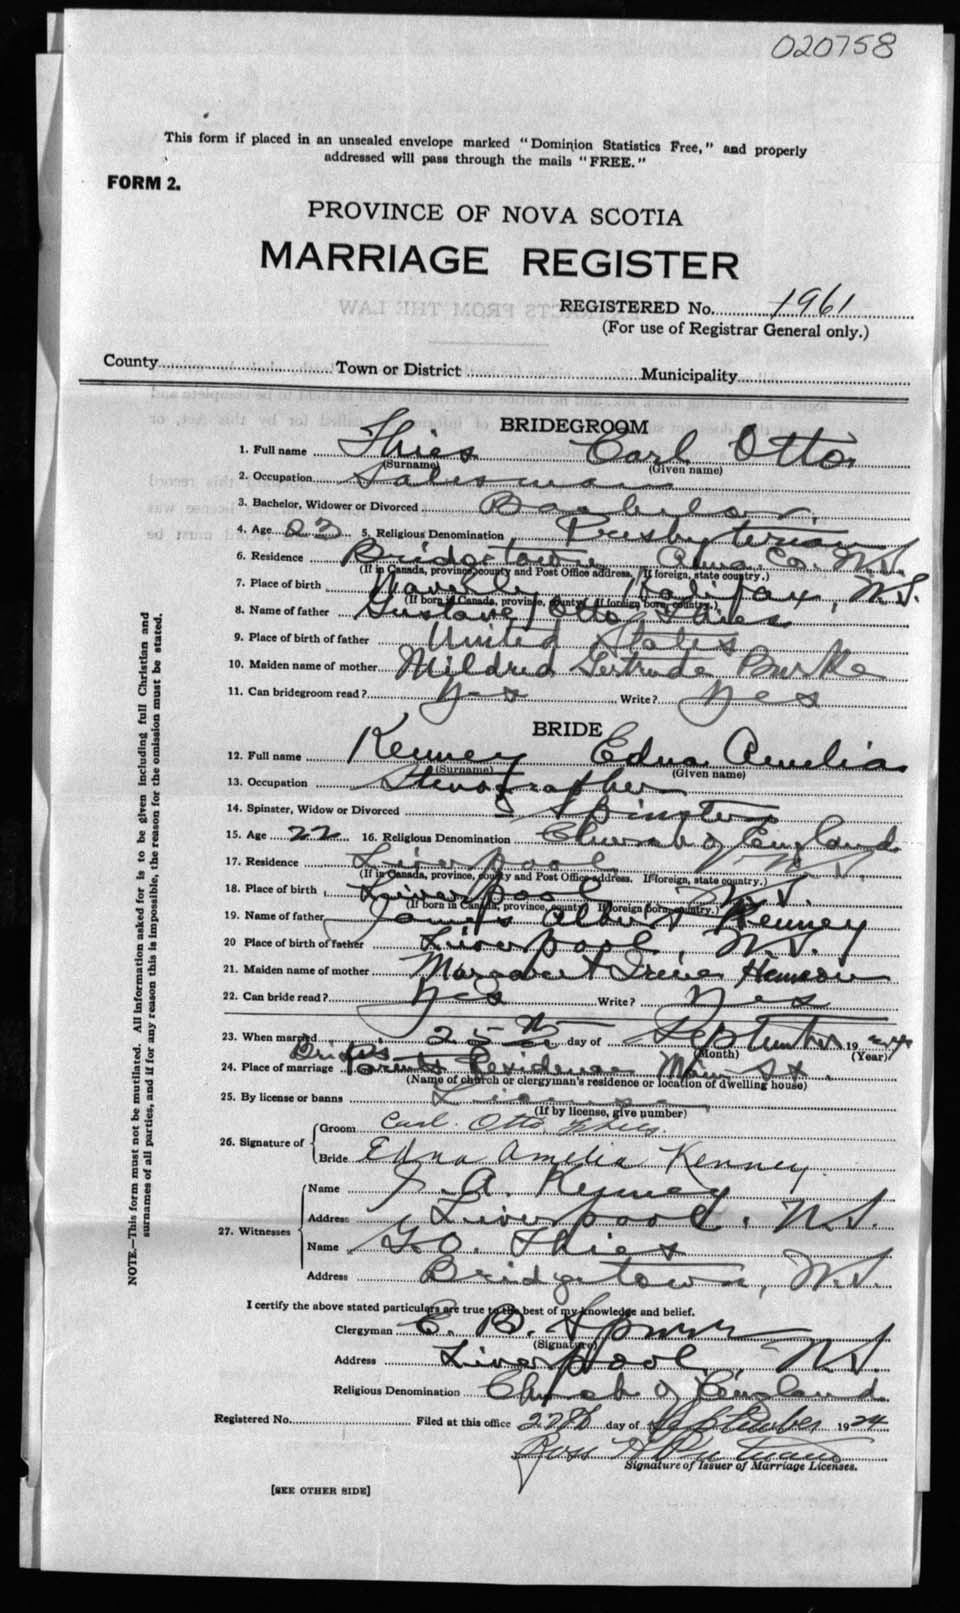 020758
This form if placed in an unsealed envelope marked "Dominion Statistics Free," and properly
addressed will pass through the mails "FREE."
FORM 2.
PROVINCE OF NOVA SCOTIA
MARRIAGE REGISTER
REGISTERED No. 1961
(For use of Registrar General only.)
County Town or District Municipality
BRIDEGROOM
1. Full name Thies Carl Otto
(Surname) (Given name)
2. Occupation Salesman
3. Bachelor, Widower or Divorced Bachelor
4. Age 23 5. Religious Denomination Presbyterian
6. Residence Bridgetown Anna. Co. N.S.
(If in Canada, province, county and Post Office address. If foreign, state country.)
7. Place of birth Waverley Halifax, N.S.
(If born in Canada, province, county. If foreign born, country.)
8. Name of father Gustave Otto Thies
9. Place of birth of father United States
10. Maiden name of mother Mildred Gertrude Burke
11. Can bridegroom read? Yes Write? Yes
BRIDE
12. Full name Kenney Edna Amelia
(Surname) (Given name)
13. Occupation Stenographer
14. Spinster, Widow or Divorced Spinster
15. Age 22 16. Religious Denomination Church of England
17. Residence Liverpool N.S.
(If in Canada, province, county and Post Office address. If foreign, state country.)
18. Place of birth Liverpool N.S
(If born in Canada, province, county. If foreign born, country.)
19. Name of father James Albert Kenney
20 Place of birth of father Liverpool, N.S.
21. Maiden name of mother Margaret Irene
22. Can bride read? Yes Write? Yes
23. When married 25th day of September 1924
(Month) (Year)
24. Place of marriage Bride's Parents Residence Main St.
(Name of church or clergyman's residence or location of dwelling house)
25. By license or banns License
(If by license, give number)
26. Signature of Groom Carl Otto Thies.
Bride Edna Amelia Kenney.
27. Witnesses Name J. A. Kenney
Address Liverpool, N.S.
Name G.O. Thies
Address Bridgetown, N.S.
I certify the above stated particulars are true to the best of my knowledge and belief.
Clergyman E. B. Spurr
(Signature)
Address Liverpool, N.S.
Religious Denomination Church of England
Registered No. Filed at this office 22th day of September 1924
Ross
Signature of Issuer of Marriage Licenses.
[SEE OTHER SIDE]
NOTE.—This form must not be mutilated. All information asked for is to be given including full Christian and
surnames of all parties, and if for any reason this is impossible, the reason for the omission must be stated.